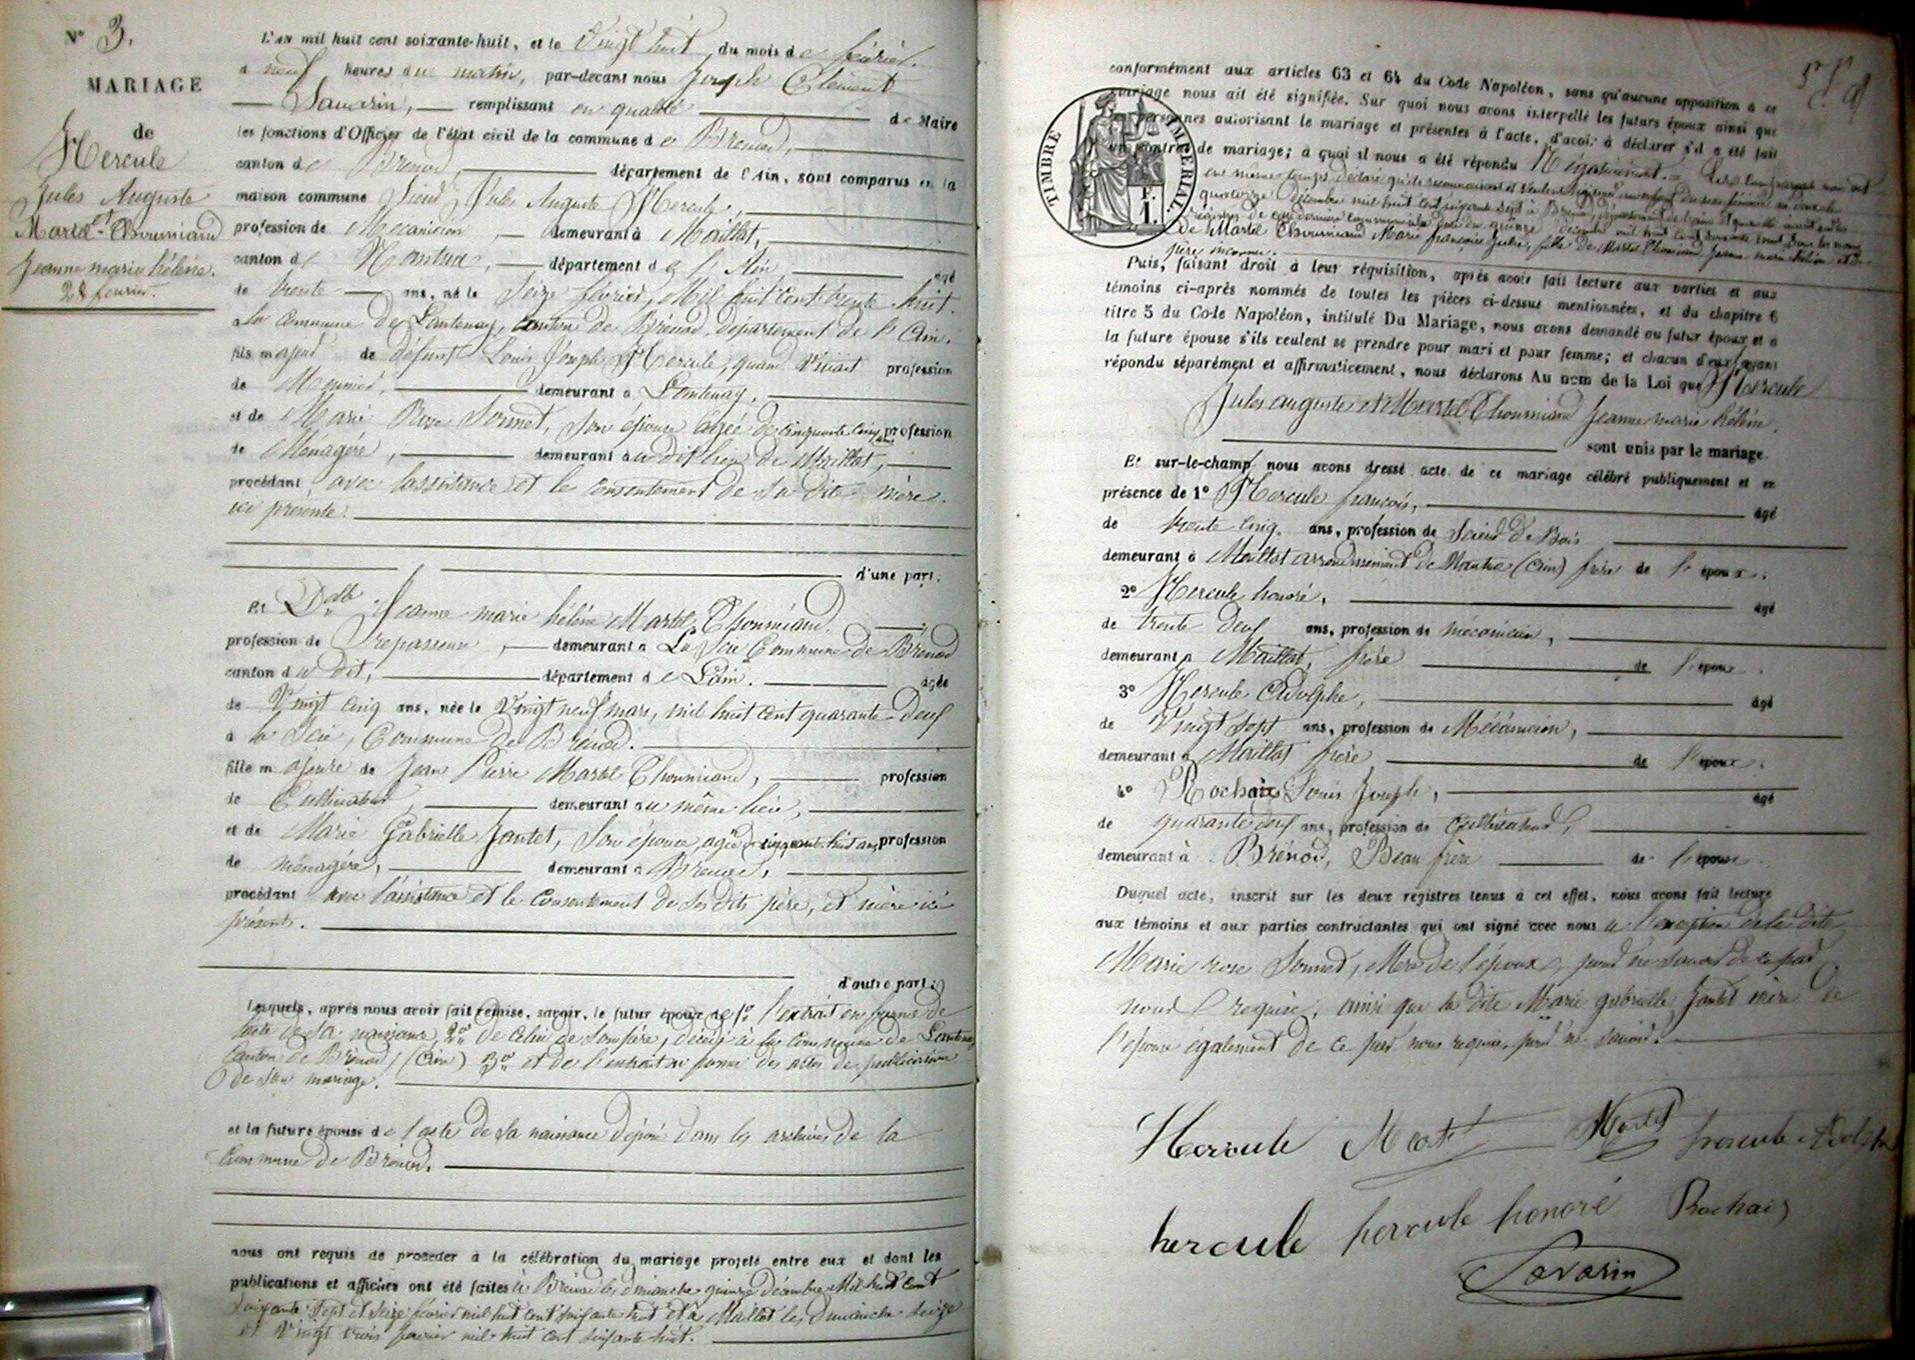 N° 3.
MARIAGE
de
Hercule
Jules Auguste
et
Martel-Thoumiand
Jeanne marie hélène.
28 février.
L'an mil huit cent soixante-huit, et le Vingt huit du mois de février.
à neuf heures du matin, par-devant nous Joseph Clément
Savarin, remplissant en qualité de Maire
les fonctions d'Officier de l'état civil de la commune de Brenod,
canton de Brenod, département de l'Ain, sont comparus en la
maison commune Sieur Jules Auguste Hercule,
profession de Mécanicien, demeurant à Maillat,
canton de Nantua, département de l'Ain, agé
de trente ans, né le Seize février, Mil huit cent trente huit.
La commune de Lantenay, canton de Brénod, département de l'Ain.
fils majeur de défunt Louis Joseph Hercule, quand vivait profession
de Meunier, demeurant à Lantenay,
et de Marie Rose Sonnet, son épouse agée de cinquante cinq ans profession
de Ménagère, demeurant au dit lieu de Maillat,
procédant avec l'assistance et le consentement de sa dite mère
ici présente.
d'une part.
Et Dlle Jeanne marie hélène Martel Thoumiand,
profession de repasseuse, demeurant à La Scie Commune de Brénod
canton du dit, département de l'Ain. agée
de Vingt cinq ans, née le Vingt neuf mars, mil huit cent quarante-deux
à la Scie, Commune de Brénod.
fille majeure de Jean Pierre Martel Thoumiand, profession
de Cultivateur, demeurant au même lieu,
et de Marie Gabrielle Jantet, son épouse, agée de cinquante huit ans, profession
de ménagère, demeurant à Brénod,
procédant avec l'assistance et le consentement de ses dits père, et mère ici
présents.
d'autre part;
Lesquels, après nous avoir fait remise, savoir, le futur époux de 1° l'extrait en forme de
l'acte de sa naissance, 2° de celui de son père, décédé à la commune de Lantenay
Canton de Brénod, (Ain) 3° et de l'extrait en forme des actes de publication
de son mariage.
et la future épouse de l'acte de sa naissance déposé dans les archives de la
Commune de Brénod.
nous ont requis de procéder à la célébration du mariage projeté entre eux et dont les
publications et affiches ont été faites à Brénod les dimanche quinze décembre Mil huit cent
soixante sept et seize février mil huit cent soixante huit et à Maillat les dimanche seize
et vingt trois février mil huit cent soixante huit.
conformément aux articles 63 et 64 du Code Napoléon, sans qu'aucune opposition à ce
mariage nous ait été signifiée. Sur quoi nous avons interpellé les futurs époux ainsi que
les personnes autorisant le mariage et présentes à l'acte, d'avoir à déclarer s'il a été fait
un contrat de mariage; à quoi il nous a été répondu Négativement.
TIMBRE IMPERIAL
en même temps déclaré qu'ils reconnaissent
quatorze Décembre mil huit cent soixante sept à Brénod, département de l'Ain
registres de cette dernière commune
de Martel Thoumiand Marie françoise Julie, fille de Martel Thoumiand Jeanne marie hélène et de
père inconnu.
Puis, faisant droit à leur réquisition, après avoir fait lecture aux parties et aux
témoins ci-après nommés de toutes les pièces ci-dessus mentionnées, et du chapitre 6
titre 5 du Code Napoléon, intitulé Du Mariage, nous avons demandé au futur époux et à
la future épouse s'ils veulent se prendre pour mari et pour femme; et chacun d'eux ayant
répondu séparément et affirmativement, nous déclarons Au nom de la Loi que Hercule
Jules auguste et Martel Thoumiand Jeanne marie hélène,
sont unis par le mariage.
Et sur-le-champ nous avons dressé acte de ce mariage célébré publiquement et en
présence de 1° Hercule françois, agé
de trente cinq ans, profession de Scieur de Bois
demeurant à Maillat arrondissement de Nantua (Ain) frère de l'époux.
2° Hercule honoré, agé
de trente deux ans, profession de mécanicien,
demeurant à Maillat, frère de l'époux.
3° Hercule Adolphe, agé
de Vingt sept ans, profession de Mécanicien,
demeurant à Maillat frère de l'époux.
4° Rochaix Louis Joseph, agé
de quarante deux ans, profession de Cultivateur,
demeurant à Brénod, Beau frère de l'épouse.
Duquel acte, inscrit sur les deux registres tenus à cet effet, nous avons fait lecture
aux témoins et aux parties contractantes qui ont signé avec nous à l'exception de la dite
Marie rose Sonnet, Mère de l'époux, pour ne savoir de ce par
nous requise; ainsi que la dite Marie gabrielle Jantet mère de
l'épouse également de ce par nous requise, pour ne savoir.
Hercule Martel Martel hercule Adolphe
hercule hercule honoré Rochaix
Savarin